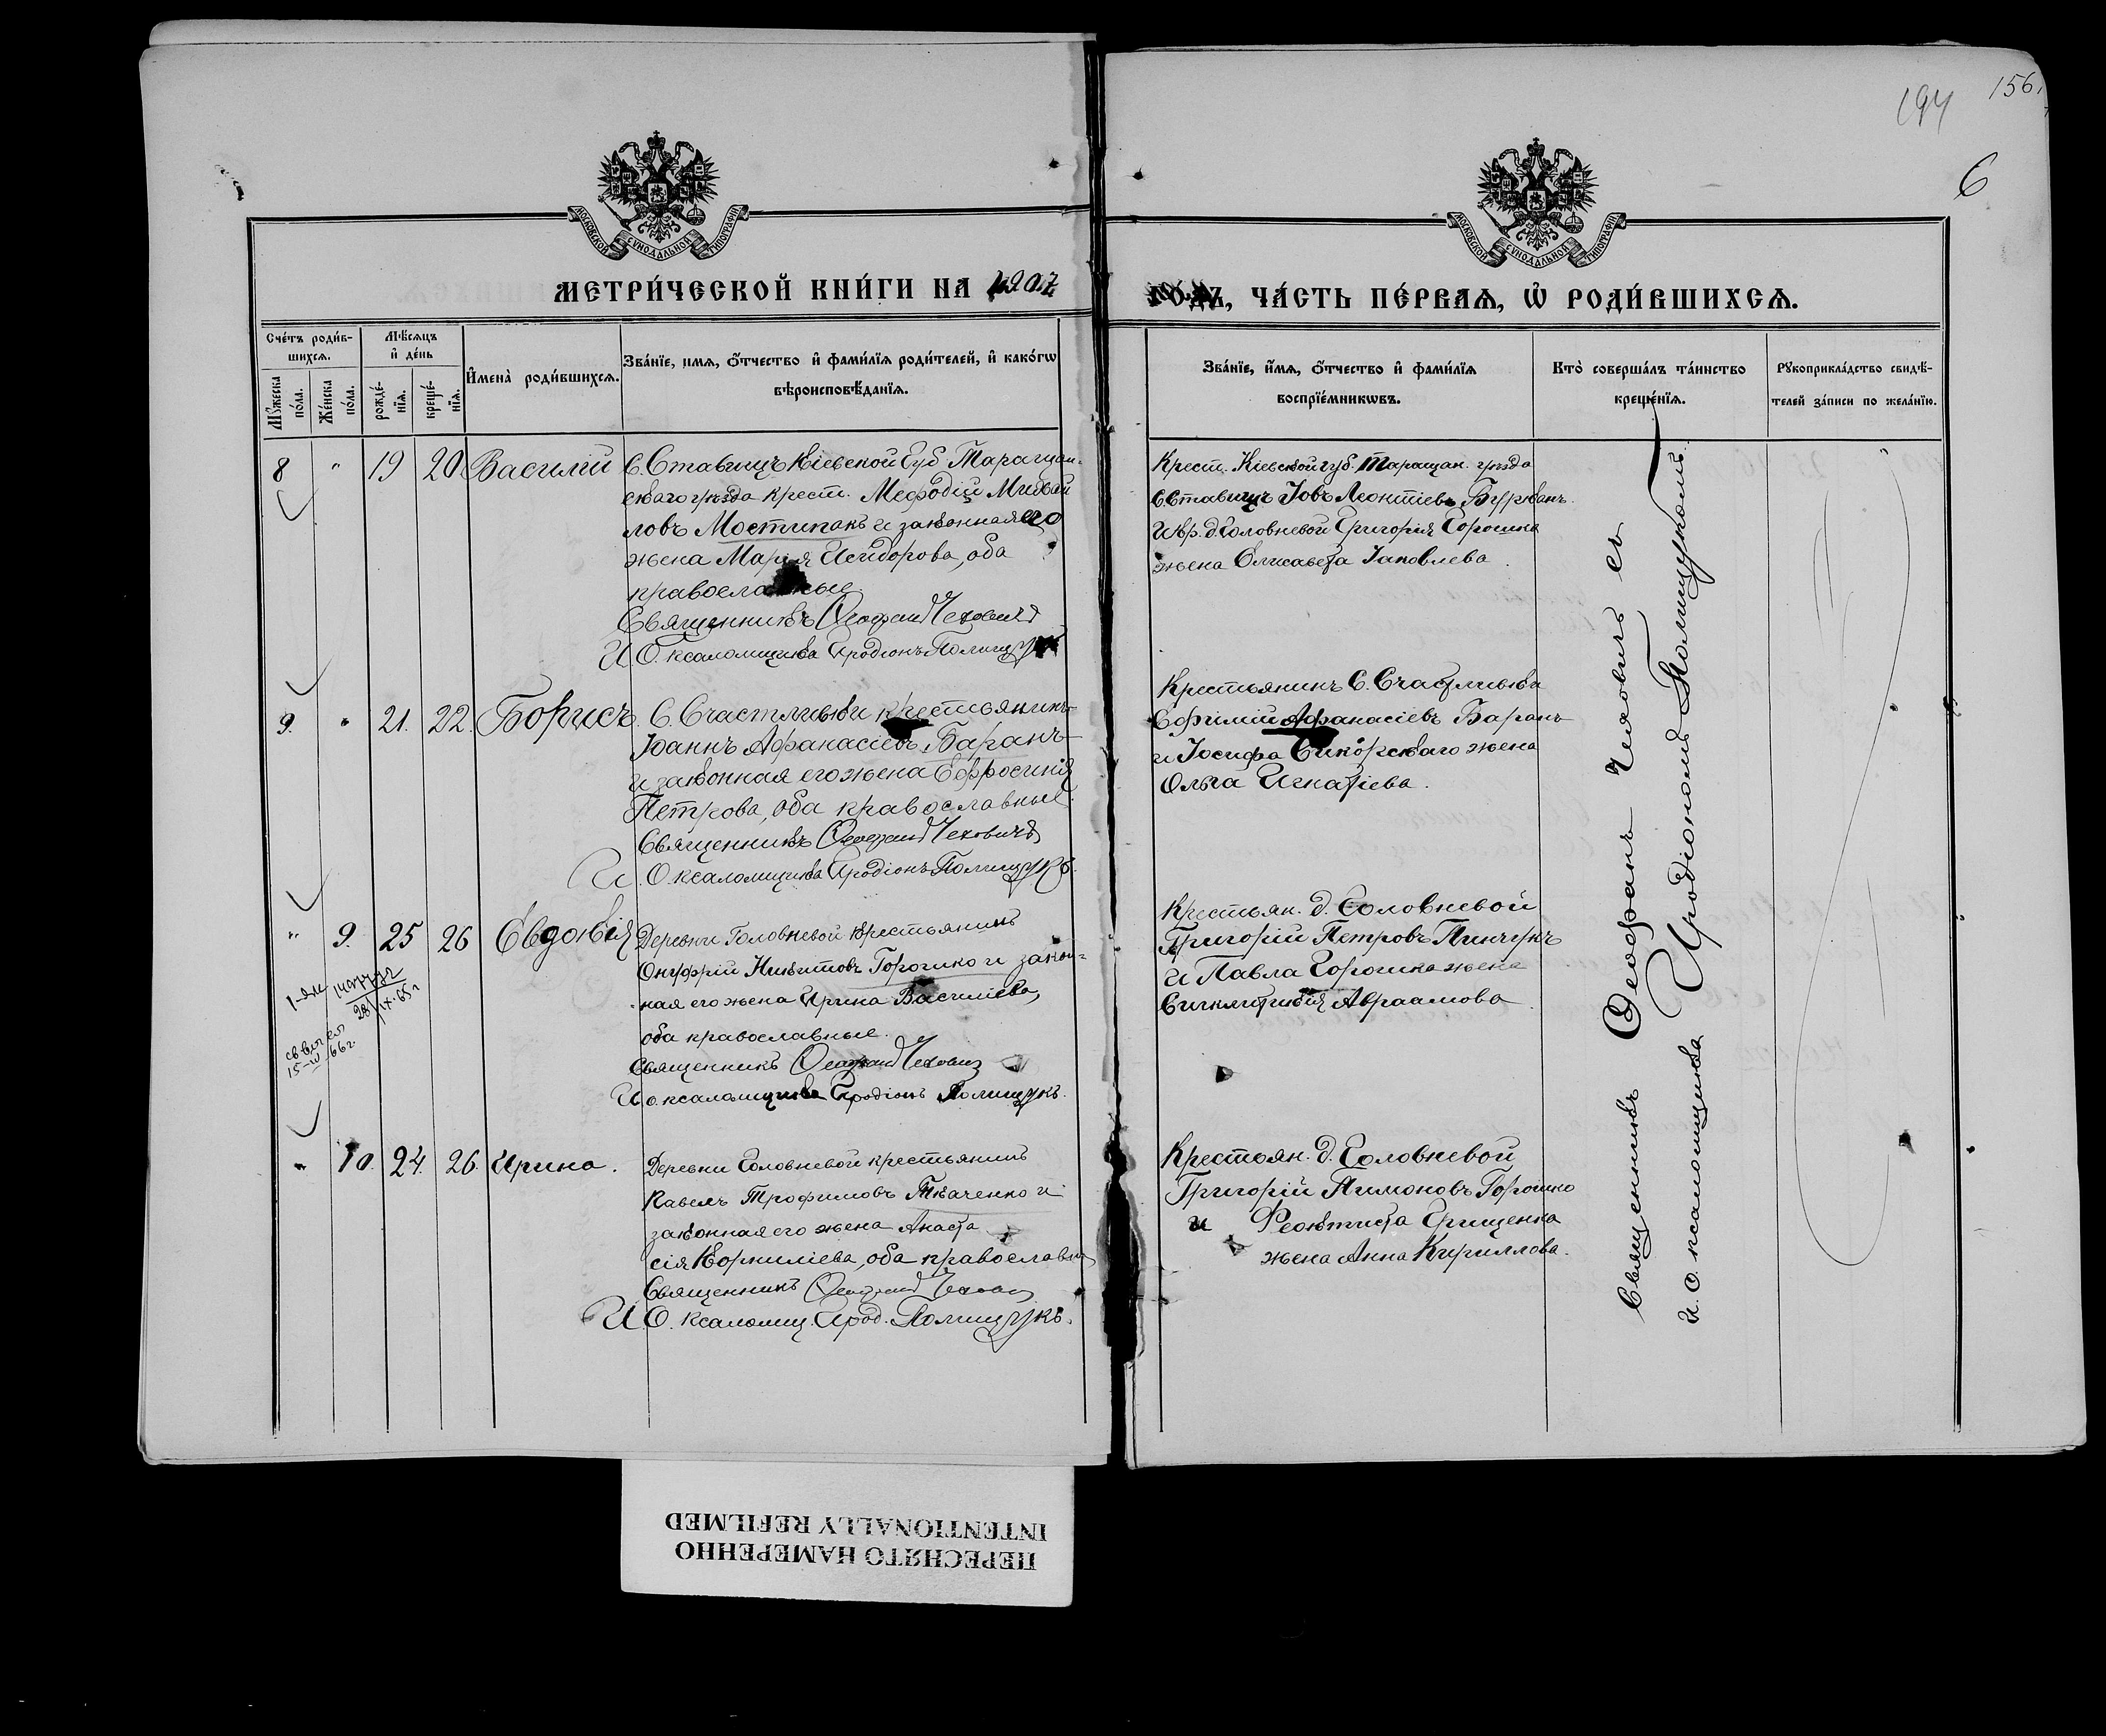 194 156
6
МОСКОВСКОЙ СѴНОДАЛЬНОЙ ТИПОГРАФІИ
МОСКОВСКОЙ СѴНОДАЛЬНОЙ ТИПОГРАФІИ
МЕТРИ́ЧЕСКОЙ КНИ́ГИ НА 1907
ГО́ДЪ, ЧА́СТЬ ПЕ́РВАѦ, Ѡ҆ РОДИ́ВШИХСѦ.
Сче́тъ роди́в-
шихсѧ.
Мꙋ́жеска
по́ла.
Же́нска
по́ла.
Мѣ́сѧцъ
и҆ де́нь
рожде́-
нїѧ.
креще́-
нїѧ.
И҆мена̀ роди́вшихсѧ.
Зва́нїе, и҆мѧ, ѻ҆́тчество и҆ фами́лїѧ роди́телей, и҆ како́гѡ
вѣроисповѣ́данїѧ.
Зва́нїе, и҆́мѧ, ѻ҆́тчество и҆ фами́лїѧ
воспрїе́мникѡвъ.
Кто̀ соверша́лъ та́инство
креще́нїѧ.
Рꙋкоприкла́дство свидѣ́-
телей за́писи по жела́нїю.
8 " 19 20 Василій
С. Ставищъ Кіевской Губ. Таращан-
скаго уѣзда крест. Меѳодій Михай
ловъ Мостипакъ и законная его
жена Марія Исидорова, оба
православные.
Священникъ Ѳеофанъ Чеховичъ
И. О. псаломщика Иродіонъ Полищукъ
Крест. Кіевской губ. Таращан. уѣзда
С. Ставищъ Іовъ Леонтіевъ Бурковъ
и кр. д. Головневой Григорія Горошка
жена Елисавета Іаковлева.
9. " 21. 22. Борисъ.
С. Счастливки крестьянинъ
Іоаннъ Аѳанасіевъ Баранъ
и законная его жена Ефросинія
Петрова, оба православные.
Священникъ Ѳеофанъ Чеховичъ
И. О. псаломщика Иродіонъ Полищукъ.
Крестьянинъ С. Счастливки
Евфимій Аѳанасіевъ Баранъ
и Іосифа Сикорскаго жена
Ольга Игнатіева.
" 9. 25 26 Евдокія
Деревни Головневой крестьянинъ
Онуфрій Никитовъ Горошко и закон-
ная его жена Ирина Васильева,
оба православные.
Священникъ Ѳеофанъ Чеховичъ
И. о. псаломщика Иродіонъ Полищукъ.
28/IX-65г
15-IV-66г.
Крестьян. д. Головневой
Григорій Петровъ Пинчукъ
и Павла Горошка жена
Синклитикія Авраамова
" 10. 24. 26. Ирина.
Деревни Головневой крестьянинъ
Павелъ Трофимовъ Ткаченко и
законная его жена Анаста
сія Корниліева, оба православн
Священникъ Ѳеофанъ Чеховичъ
И. О. псаломщ. Ирод. Полищукъ.
Крестьян. д. Головневой
Григорій Пимоновъ Горошко
и Ѳеоктиста Грищенка
жена Анна Кириллова.
Священникъ Ѳеофанъ Чеховичъ съ
и. о. псаломщика Иродіономъ Полищукомъ.
ПЕРЕСНЯТО НАМЕРЕННО
INTENTIONALLY REFILMED